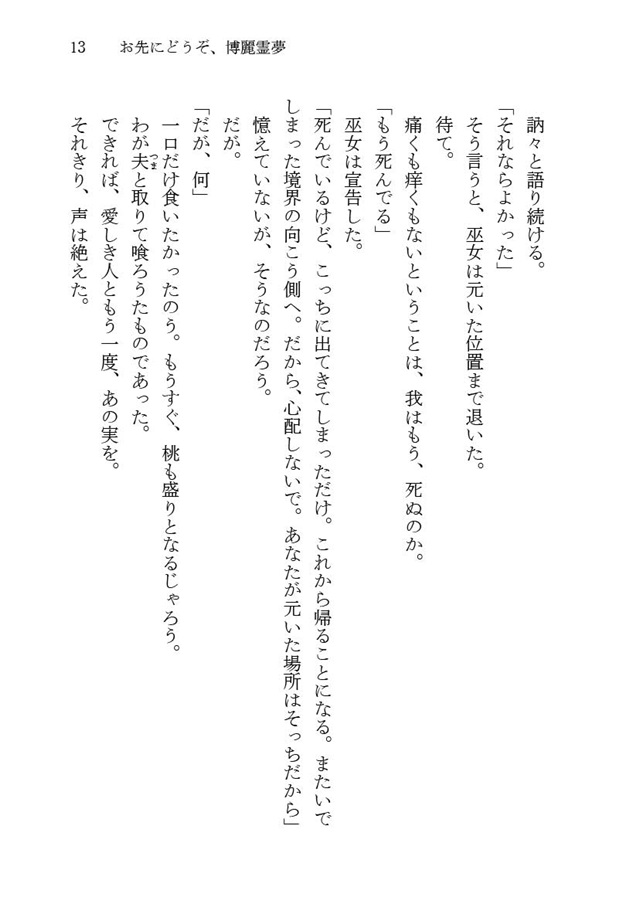 13　お先にどうぞ、博麗霊夢
訥々と語り続ける。
「それならよかった」
そう言うと、巫女は元いた位置まで退いた。
待て。
痛くも痒くもないということは、我はもう、死ぬのか。
「もう死んでる」
巫女は宣告した。
「死んでいるけど、こっちに出てきてしまっただけ。これから帰ることになる。またいで
しまった境界の向こう側へ。だから、心配しないで。あなたが元いた場所はそっちだから」
憶えていないが、そうなのだろう。
だが。
「だが、何」
一口だけ食いたかったのう。もうすぐ、桃も盛りとなるじゃろう。
わが夫と取りて喰ろうたものであった。
つま
できれば、愛しき人ともう一度、あの実を。
それきり、声は絶えた。